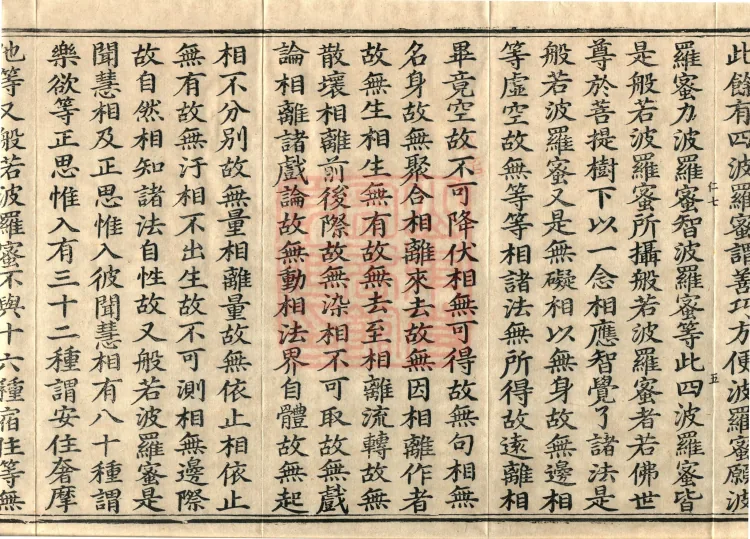 此餘有四波羅蜜謂善巧方便波羅蜜願波
羅蜜力波羅蜜智波羅蜜等此四波羅蜜皆
仁七
五
是般若波羅蜜所攝般若波羅蜜者若佛世
尊於菩提樹下以一念相應智覺了諸法是
般若波羅蜜又是無礙相以無身故無邊相
等虛空故無等等相諸法無所得故遠離相
畢竟空故不可降伏相無可得故無句相無
名身故無聚合相離來去故無因相離作者
故無生相生無有故無去至相離流轉故無
散壞相離前後際故無染相不可取故無戲
論相離諸戲論故無動相法界自體故無起
相不分別故無量相離量故無依止相依止
無有故無汙相不出生故不可測相無邊際
故自然相知諸法自性故又般若波羅蜜是
聞慧相及正思惟入彼聞慧相有八十種謂
樂欲等正思惟入有三十二種謂安住奢摩
他等又般若波羅蜜不與十六種宿住等無